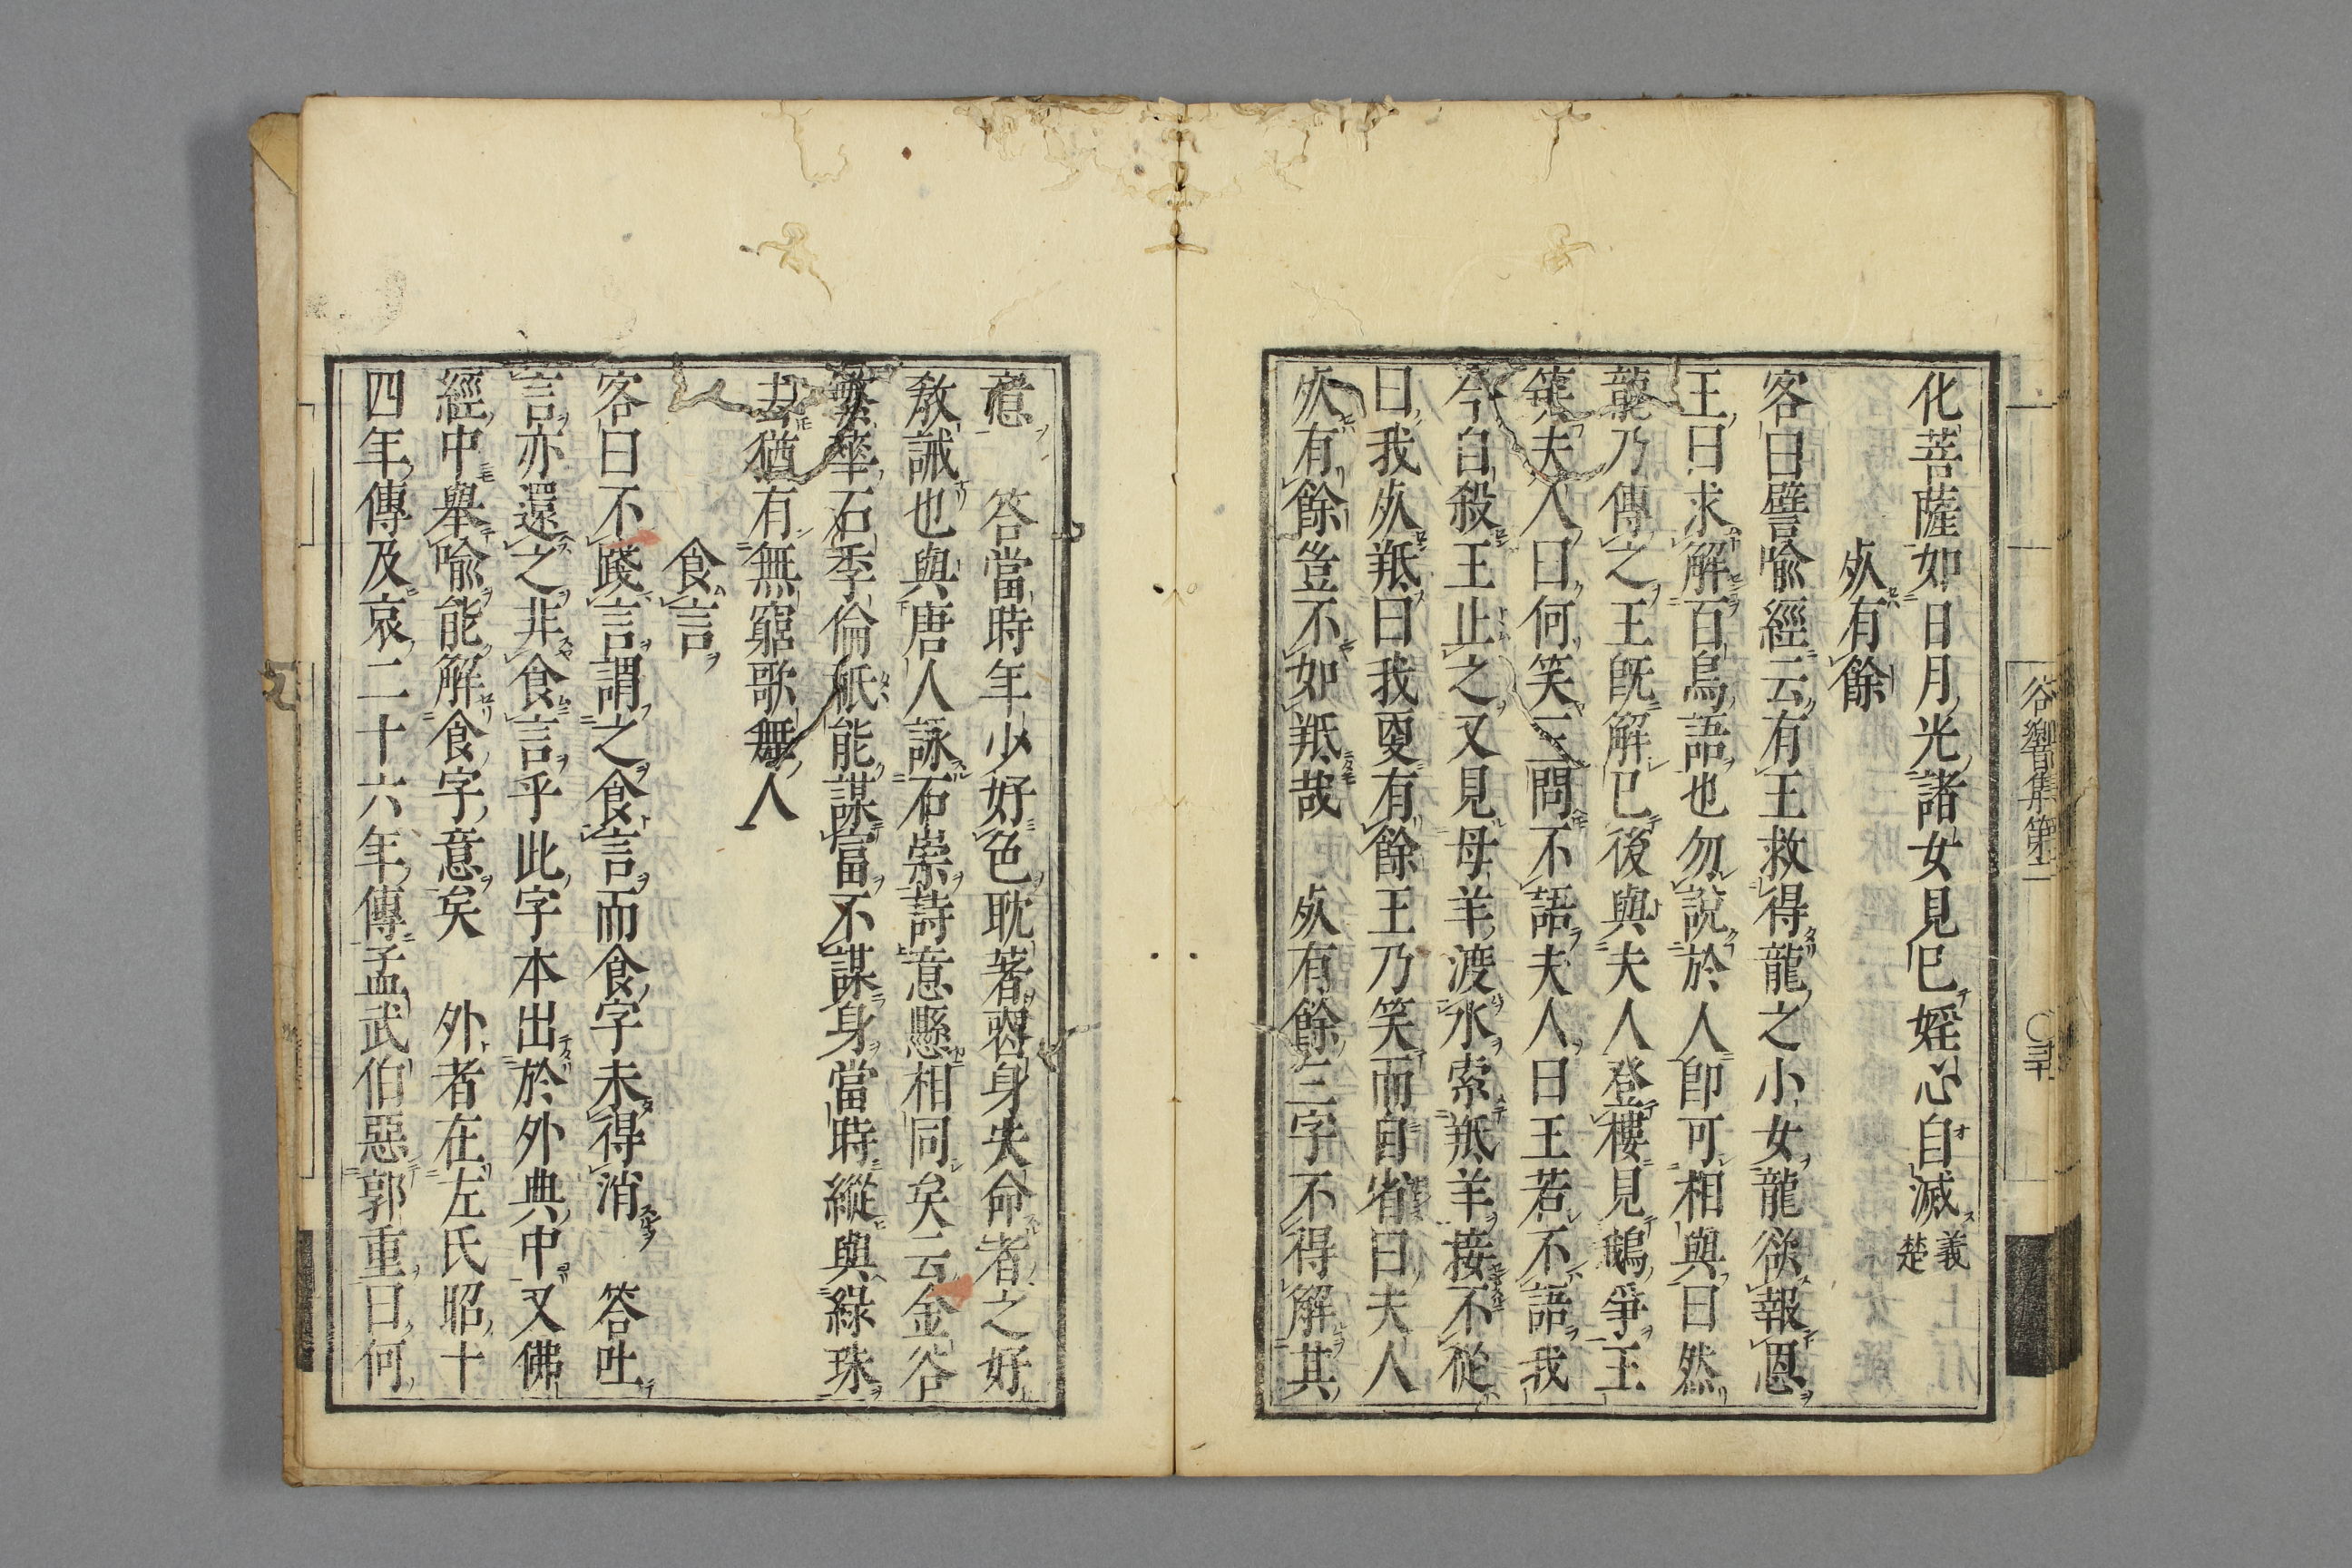 化菩薩如日月光諸女見已婬心自滅義楚
死有餘
客曰譬喻經云有王救得龍之小女龍欲報恩
王曰求解百鳥語也勿說於人即可相與曰然
龍乃傳之王旣解已後與夫人登樓見鵝爭王
笑夫人曰何笑三問不語夫人曰王若不語我
今自殺王止之又見母羊渡水索羝羊接不從
曰我死羝曰我更有餘王乃笑而自省曰夫人
死有餘豈不如羝哉　死有餘三字不得解其
意　答當時年少好色耽著習身失命者之好
教誡也與唐人詠石崇詩意懸相同矣云金谷
繁華石季倫秪能謀富不謀身當時縱與綠珠
去猶有無窮歌舞人
食言
客曰不踐言謂之食言而食字未得消　答吐
言亦還之非食言乎此字本出於外典中又佛
經中舉喻能解食字意矣　外者在左氏昭十
四年傳及哀二十六年傳孟武伯惡郭重曰何
谷響集第二